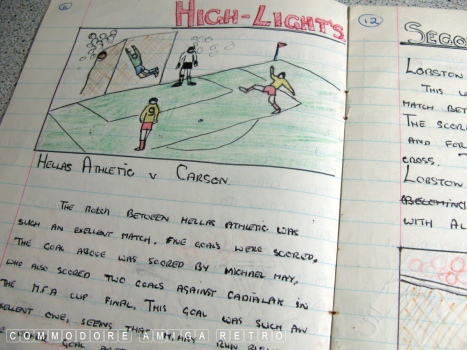 6
HIGH-LIGHTS
9
HELLAS ATHLETIC V CARSON.
THE MATCH BETWEEN HELLAS ATHLETIC WAS
SUCH AN EXELLENT MATCH. FIVE GOALS WERE SCORED.
THE GOAL ABOVE WAS SCORED BY MICHAEL MAY,
WHO ALSO SCORED TWO GOALS AGAINST CADIALAX IN
THE M.F.A CUP FINAL. THIS GOAL WAS SUCH AN
ELLENT ONE, SEEING THAT
GOAL
12
SECO
LOBSTON
THIS W
MATCH BETW
THE SCOR
AND FOR
CROSS.
LOBSTON
BECOMING
WITH AL
COMMODORE AMIGA RETRO